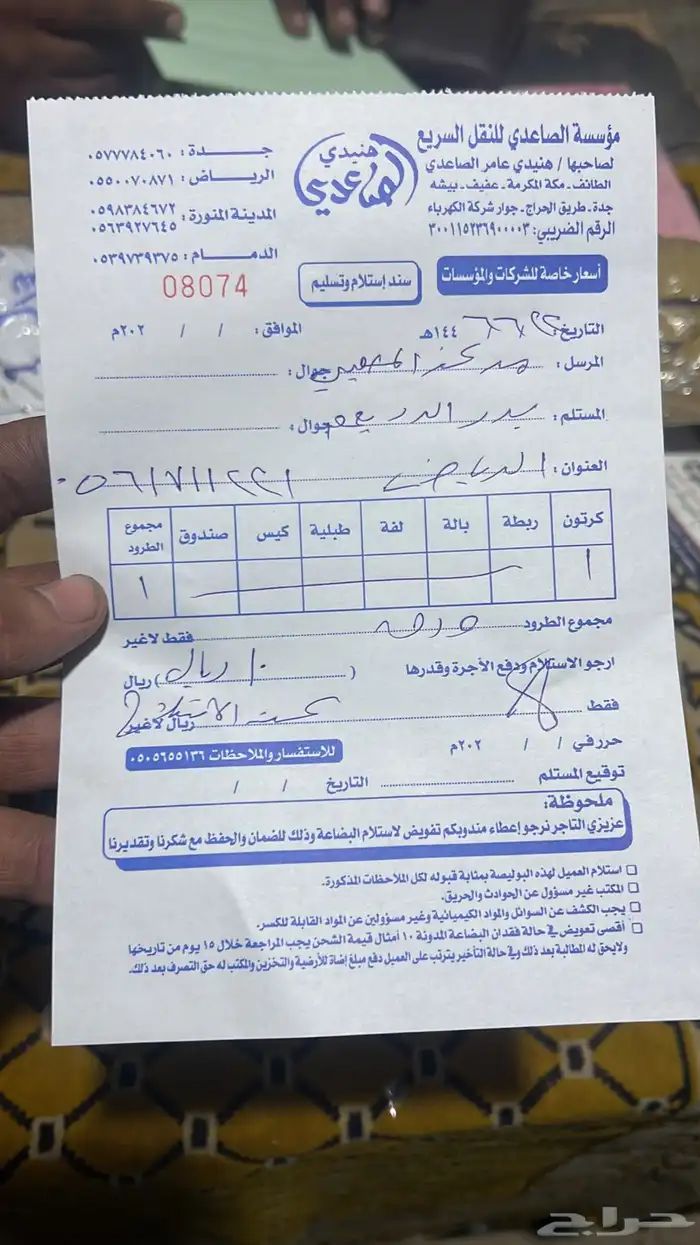 مؤسسة الصاعدي للنقل السريع
لصاحبها / هنيدي عامر الصاعدي
الطائف - مكة المكرمة - عفيف - بيشه
جدة - طريق الحراج - جوار شركة الكهرباء
الرقم الضريبي: ٣٠٠١١٥٢٣٦٩٠٠٠٠٣
هنيدي
الصاعدي
جدة: ٠٥٧٧٧٨٤٠٦٠
الرياض: ٠٥٥٠٠٧٠٨٧١
المدينة المنورة: ٠٥٩٨٣٨٤٦٧٢
٠٥٦٣٩٢٧٦٤٥
الدمام: ٠٥٣٩٧٣٩٣٧٥
أسعار خاصة للشركات والمؤسسات
سند إستلام وتسليم
08074
التاريخ ١٤٤ هـ الموافق: / / ٢٠٢م
المرسل: مركز جوال:
المستلم: بدر جوال:
العنوان: الرياض ٠٥٦١٧١١٢٢١
كرتون ربطة بالة لفة طبلية كيس صندوق مجموع الطرود
١ ١
مجموع الطرود واحد فقط لاغير
ارجو الاستلام ودفع الأجرة وقدرها ( ١٠ ريال ) ريال
فقط ريال لاغير
حرر في / / ٢٠٢م
للاستفسار والملاحظات ٠٥٠٥٦٥٥١٣٦
توقيع المستلم التاريخ / /
ملحوظة:
عزيزي التاجر نرجو إعطاء مندوبكم تفويض لاستلام البضاعة وذلك للضمان والحفظ مع شكرنا وتقديرنا
استلام العميل لهذه البوليصة بمثابة قبوله لكل الملاحظات المذكورة.
المكتب غير مسؤول عن الحوادث والحريق.
يجب الكشف عن السوائل والمواد الكيميائية وغير مسؤولين عن المواد القابلة للكسر.
أقصى تعويض في حالة فقدان البضاعة المدونة ١٠ أمثال قيمة الشحن يجب المراجعة خلال ١٥ يوم من تاريخها
ولايحق له المطالبة بعد ذلك وفي حالة التأخير يترتب على العميل دفع مبلغ إضافة للأرضية والتخزين والمكتب له حق التصرف بعد ذلك.
حراج